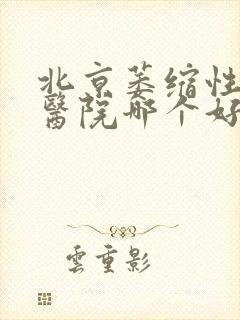 北京萎缩性
醫院哪个好
雲重影